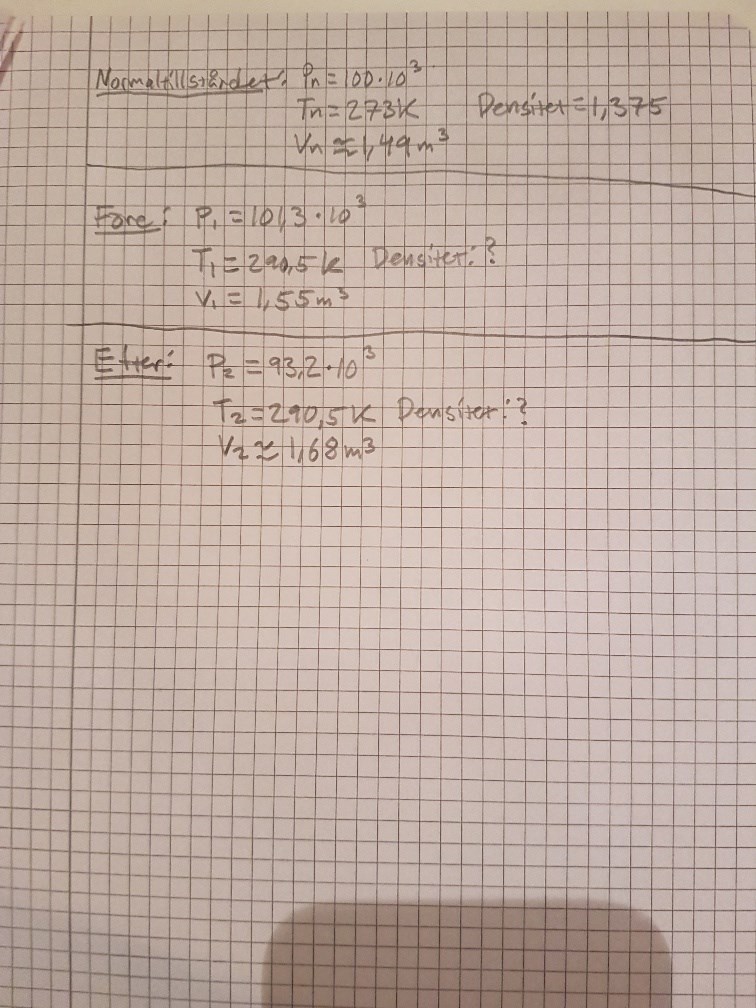 Normaltillståndet: Pn = 100·10³
Tn = 273K Densitet = 1,375
Vn ≈ 1,49 m³
Före: P₁ = 101,3·10³
T₁ = 290,5 K Densitet: ?
V₁ = 1,55 m³
Efter: P₂ = 93,2·10³
T₂ = 290,5 K Densitet: ?
V₂ ≈ 1,68 m³